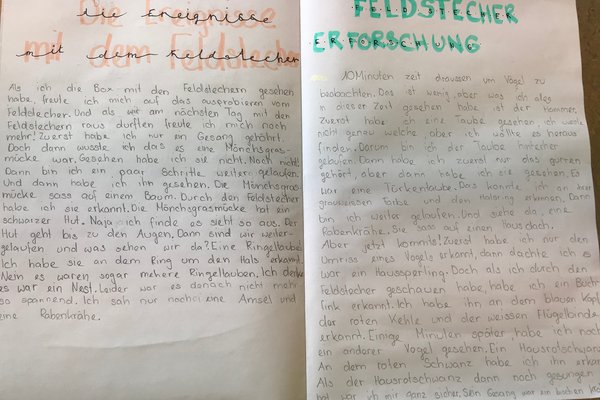 die Ereignisse
mit dem Feldstecher
Als ich die Box mit den Feldstechern gesehen
habe, freute ich mich auf das ausprobieren vom
Feldstecher. Und als wir am nächsten Tag mit den
Feldstechern raus durften freute ich mich noch
mehr! Zuerst habe ich nur ein Gesang gehört.
Doch dann wusste ich das es eine Mönchsgras-
mücke war. Gesehen habe ich sie nicht. Noch nicht!
Dann bin ich ein paar Schritte weiter gelaufen.
Und dann habe ich ihn gesehen. Die Mönchsgras-
mücke sass auf einem Baum. Durch den Feldstecher
habe ich sie erkannt. Die Mönchsgrasmücke hat ein
schwarzer Hut. Naja ich finde es sieht so aus. Der
Hut geht bis zu den Augen. Dann sind wir weiter-
gelaufen und was sehen wir da? Eine Ringeltaube!
Ich habe sie an dem Ring um den Hals erkannt.
Nein es waren sogar mehere Ringeltauben. Ich denke
es war ein Nest. Leider war es danach nicht mehr
so spannend. Ich sah nur noch: eine Amsel und
eine Rabenkrähe.
FELDSTECHER
ERFORSCHUNG
10 Minuten zeit draussen um Vögel zu
beobachten. Das ist wenig, aber was ich alles
in dieser Zeit gesehen habe ist der Hammer.
Zuerst habe ich eine Taube gesehen, ich wusste
nicht genau welche, aber ich wollte es heraus
finden. Darum bin ich der Taube hinterher
gelaufen. Dann habe ich zuerst nur das gurren
gehört, aber dann habe ich sie gesehen. Es
war eine Türkentaube. Das konnte ich an ihrer
grauweissen Farbe und den Halsring erkennen. Dann
bin ich weiter gelaufen. Und siehe da, eine
Rabenkrähe. Sie sass auf einen Hausdach.
Aber jetzt kommts! Zuerst habe ich nur den
Umriss eines Vogels erkannt, dann dachte ich es
war ein Haussperling. Doch als ich durch den
Feldstecher geschauen habe, habe ich ein Buch-
fink erkannt. Ich habe ihn an dem Blauen Kopf
der roten Kehle und der weissen Flügelbinde
erkannt. Einige Minuten später, habe ich noch
ein anderer Vogel gesehen. Ein Hausrotschwanz
An dem roten Schwanz habe ich ihn erkannt
Als der Hausrotschwanz dann noch gesungen
hat war ich mir ganz sicher. Sein Gesang war ein bischen